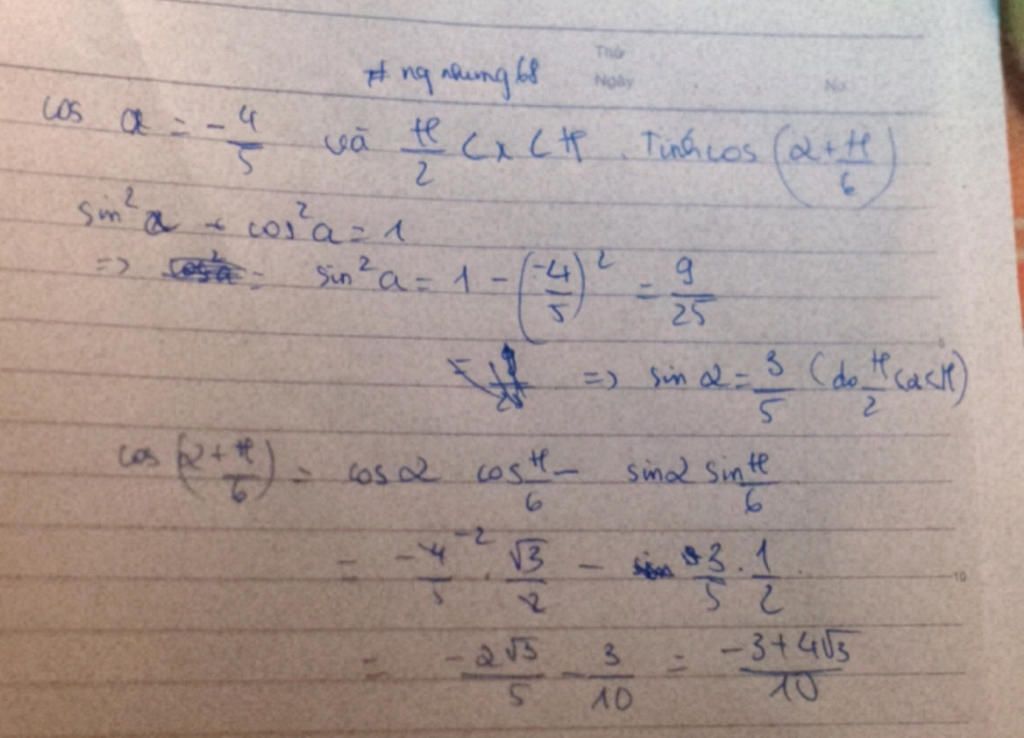 Thứ
# ng nhung 68
Ngày No
cos α = -4/5 và π/2 < x < π. Tính cos (α + π/6)
sin²α + cos²a = 1
=> sin²a = 1 - (-4/5)² = 9/25
=> sin α = 3/5 (do π/2 < α < π)
cos (α + π/6) = cos α cos π/6 - sin α sin π/6
= -4/5 -2 . √3/2 - 3/5 . 1/2
10
= -2√3/5 - 3/10 = -3+4√3/10